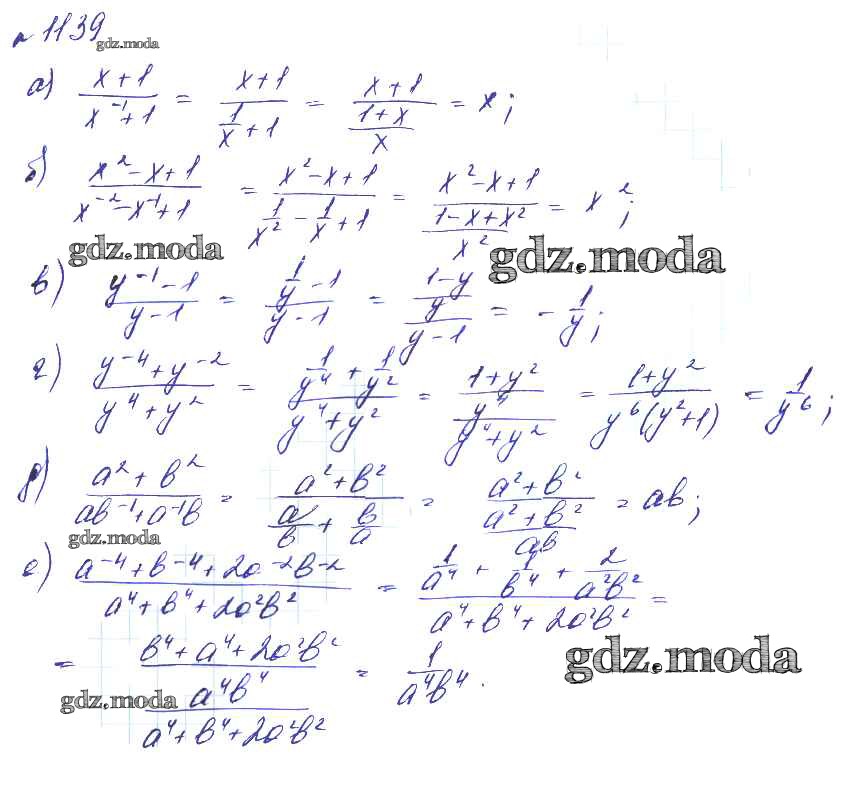 № 1139
gdz.moda
а) (x+1)/(x⁻¹+1) = (x+1)/(1/x+1) = (x+1)/((1+x)/x) = x;
б) (x²-x+1)/(x⁻²-x⁻¹+1) = (x²-x+1)/(1/x²-1/x+1) = (x²-x+1)/((1-x+x²)/x²) = x²;
gdz.moda gdz.moda
в) (y⁻¹-1)/(y-1) = (1/y-1)/(y-1) = ((1-y)/y)/(y-1) = -1/y;
г) (y⁻⁴+y⁻²)/(y⁴+y²) = (1/y⁴+1/y²)/(y⁴+y²) = ((1+y²)/y⁴)/(y⁴+y²) = (1+y²)/(y⁶(y²+1)) = 1/y⁶;
д) (a²+b²)/(ab⁻¹+a⁻¹b) = (a²+b²)/(a/b+b/a) = (a²+b²)/((a²+b²)/ab) = ab;
gdz.moda
е) (a⁻⁴+b⁻⁴+2a⁻²b⁻²)/(a⁴+b⁴+2a²b²) = (1/a⁴+1/b⁴+2/(a²b²))/(a⁴+b⁴+2a²b²) =
= ((b⁴+a⁴+2a²b²)/(a⁴b⁴))/(a⁴+b⁴+2a²b²) = 1/(a⁴b⁴).
gdz.moda
gdz.moda